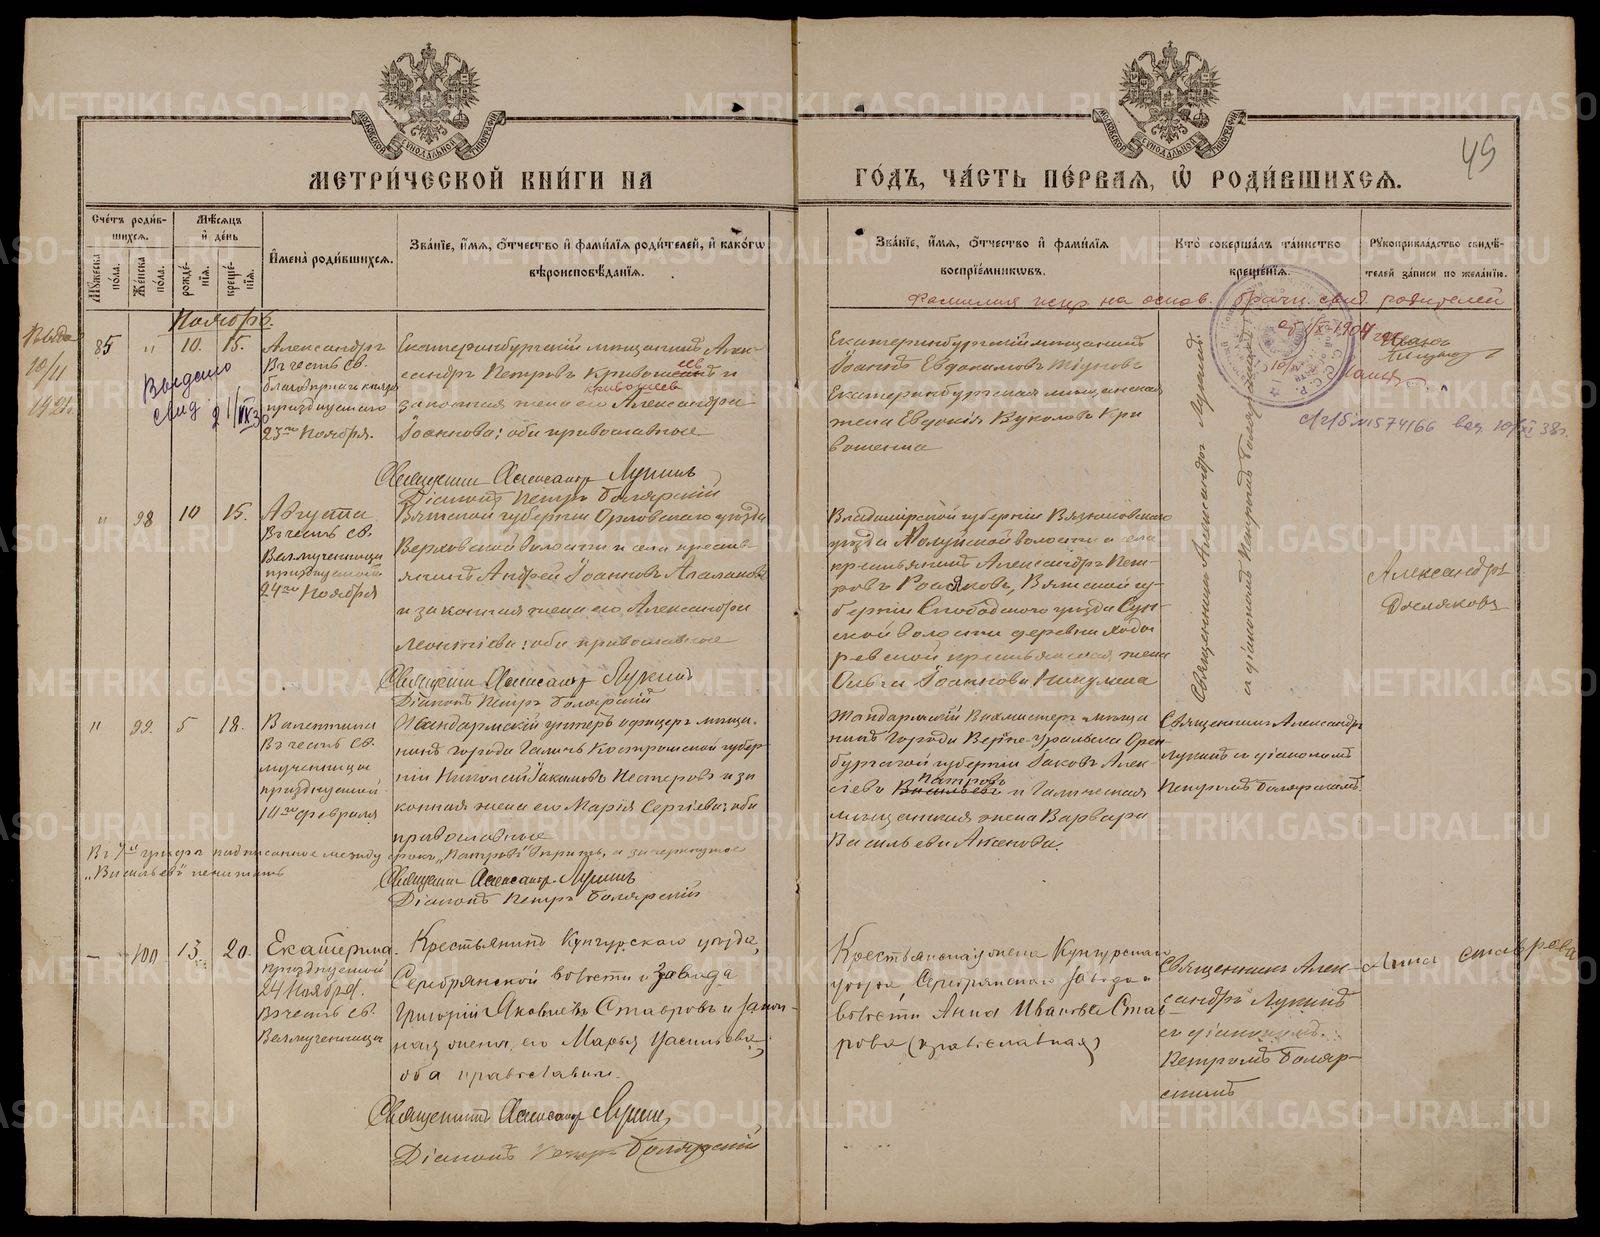 МЕТРИ́ЧЕСКОЙ КНИ́ГИ НА ГО́ДЪ, ЧА́СТЬ ПЕ́РВАЯ, Ѡ РОДИ́ВШИХСЯ.
49
Сче́тъ роди́вшихся.
Му́жеска по́ла.
Же́нска по́ла.
Мѣ́сяцъ и де́нь
рожде́нія.
креще́нія.
Имена̀ роди́вшихся.
Зва́ніе, и́мя, о́тчество и фами́лія роди́телей, и како́гѡ вѣроисповѣ́данія.
Зва́ніе, и́мя, о́тчество и фами́лія воспріе́мниковъ.
Кто̀ соверша́лъ та́инство креще́нія.
Рукоприкла́дство свидѣ́телей за́писи по жела́нію.
Фамилия испр. на основ. брачн. свид. родителей
Ноябрь.
85 " 10. 15.
Александръ
Въ честь св.
благовѣрнаго князя
празднуемаго
23го Ноября.
Выдано
свид.
Екатеринбургскій мѣщанинъ Алек-
сандръ Петровъ
законная жена его Александра
Іоаннова; оба православные
Священникъ Александръ Лукинъ
Діаконъ Петръ Болярскій
Екатеринбургскій мѣщанинъ
Іоаннъ Евдокимовъ
Екатеринбургская мѣщанская
жена Евдокія Вуколова Кри
вошеина
Священникъ Александръ Лукинъ
съ діакономъ Петромъ Болярскимъ
" 98 10 15.
Августа
Въ честь св.
Великомученицы
празднуемой
24го Ноября
Вятской губерніи Орловскаго уѣзда
Верховской волости и села кресть-
янинъ Андрей Іоанновъ
и законная жена его Александра
Леонтіева; оба православные
Священникъ Александръ Лукинъ
Діаконъ Петръ Болярскій
Владимірской губерніи Вязниковскаго
уѣзда волости и села
крестьянинъ Александръ Пет-
ровъ Вятской гу-
берніи Слободского уѣзда Сун-
ской волости деревни
ревской крестьянская жена
Ольга Іоаннова Никулина
Александръ
" 99. 5 18.
Валентина
Въ честь св.
мученицы,
празднуемой
10го Февраля
Жандармскій унтеръ офицеръ мѣща-
нинъ города Галичъ Костромской губер-
ніи Николай Іакимовъ Нестеровъ и за
конная жена его Марія Сергіева; оба
православные
Священникъ Александръ Лукинъ
Діаконъ Петръ Болярскій
Жандармскій Вахмистеръ мѣща
нинъ города Верхне-Уральска Орен-
бургской губерніи Іаковъ Алек-
сіевъ Васильевъ и Галическая
мѣщанская жена Варвара
Васильева
Священникъ Александръ
Лукинъ съ діакономъ
Петромъ Болярскимъ.
— 100 13 20.
Екатерина.
Празднуемой
24 Ноября.
Въ честь св.
Великомученицы
Крестьянинъ Кунгурскаго уѣзда,
Серебрянской волости и завода
Григорій Яковлевъ Ставровъ и закон-
ная жена его Марья Васильева,
оба православные.
Священникъ Александръ Лукинъ
Діаконъ Петръ Болярскій
Крестьянская жена Кунгурскаго
уѣзда Серебрянскаго завода и
волости Анна Иванова Став-
рова (православная)
Священникъ Алек-
сандръ Лукинъ
съ діакономъ
Петромъ Боляр-
скимъ
Анна Ставрова
METRIKI.GASO-URAL.RU